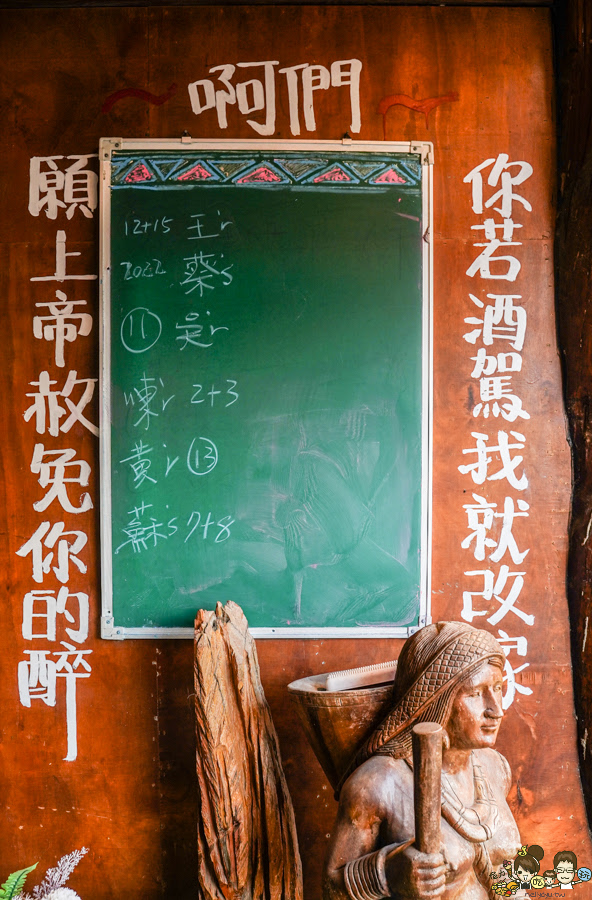 ~啊們~
你若酒駕我就改嫁
願上帝赦免你的醉
12+15 王r
2022 蔡's
⑪ 吳r
陳r 2+3
黃r ⑬
蘇's 7+8